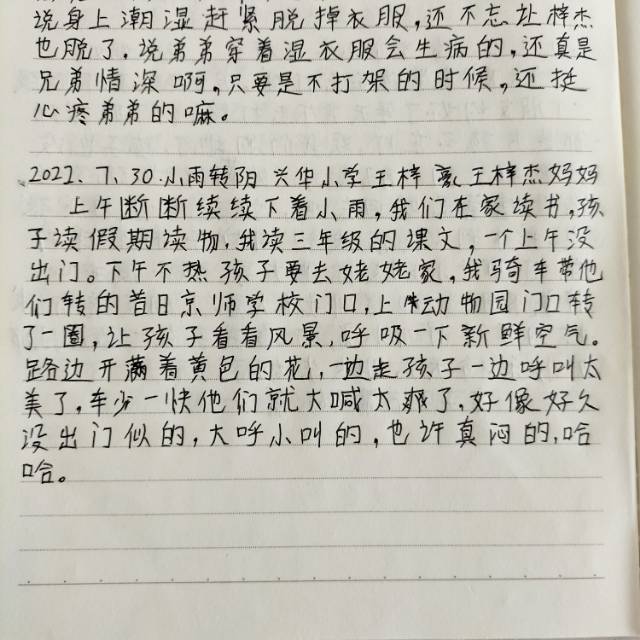 说身上潮湿赶紧脱掉衣服,还不忘让梓杰
也脱了,说弟弟穿着湿衣服会生病的,还真是
兄弟情深啊,只要是不打架的时候,还挺
心疼弟弟的嘛。
2022.7.30.小雨转阳 兴华小学王梓 王梓杰妈妈
上午断断续续下着小雨,我们在家读书,孩
子读假期读物,我读三年级的课文,一个上午没
出门。下午不热孩子要去姥姥家,我骑车带他
们转的昔日京师学校门口,上 动物园门口转
了一圈,让孩子看看风景,呼吸一下新鲜空气。
路边开满着黄色的花,一边走孩子一边呼叫太
美了,车少一快他们就大喊太爽了,好像好久
没出门似的,大呼小叫的,也许真闷的,哈
哈。